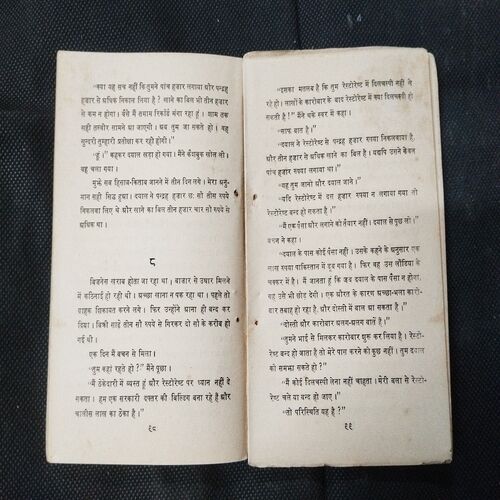 “क्या यह सच नहीं कि तुमने पांच हजार लगाया और पन्द्रह
हजार से अधिक निकाल लिया है ? खाने का बिल भी तीन हजार
से कम न होगा। वैसे मैं तमाम रिकॉर्ड मंगा रहा हूं। शाम तक
सही तस्वीर सामने आ जाएगी। अब तुम जा सकते हो। वह
सुन्दरी तुम्हारी प्रतीक्षा कर रही होगी।”
“हूं।” कहकर दयाल खड़ा हो गया। मैंने कैशबुक खोल ली।
वह चला गया।
मुझे सब हिसाब-किताब जानने में तीन दिन लगे। मेरा अनु-
मान सही सिद्ध हुआ। दयाल ने पन्द्रह हजार छः सौ तीस रुपये
निकलवा लिए थे और खाने का बिल तीन हजार चार सौ रुपये से
अधिक था।
८
बिजनेस खराब होता जा रहा था। बाजार से उधार मिलने
में कठिनाई हो रही थी। अच्छा खाना न पक रहा था। पहले तो
ग्राहक शिकायत करने लगे। फिर उन्होंने आना ही बन्द कर
दिया। बिक्री साढ़े तीन सौ रुपये से गिरकर दो सौ के करीब हो
गई थी।
एक दिन मैं बचन से मिला।
“तुम कहां रहते हो ?” मैंने पूछा।
“मैं ठेकेदारी में व्यस्त हूं और रेस्टोरेण्ट पर ध्यान नहीं दे
सकता। हम एक सरकारी दफ्तर की बिल्डिंग बना रहे हैं और
चालीस लाख का ठेका है।”
९८
“इसका मतलब है कि तुम रेस्टोरेण्ट में दिलचस्पी नहीं ले
रहे हो। लाखों के कारोबार के बाद रेस्टोरेण्ट में क्या दिलचस्पी हो
सकती है !” मैंने थके स्वर में कहा।
“साफ बात है।”
“दयाल ने रेस्टोरेण्ट से पन्द्रह हजार रुपया निकलवाया है,
और तीन हजार से अधिक खाने का बिल है। यद्यपि उसने केवल
पांच हजार रुपया लगाया था।”
“वह तुम जानो और दयाल जाने।”
“यदि रेस्टोरेण्ट में दस हजार रुपया न लगाया गया तो
रेस्टोरेण्ट बन्द हो सकता है।”
“मैं एक पैसा और लगाने को तैयार नहीं। दयाल से पूछ लो।”
बचन ने कहा।
“दयाल के पास कोई पैसा नहीं। उसके कहने के अनुसार एक
लाख रुपया पाकिस्तान में डूब गया है। फिर वह उस लौंडिया के
चक्कर में है। मैं जानता हूं कि जब दयाल के पास पैसा न होगा,
वह उसे भी छोड़ देगी। एक औरत के कारण अच्छा-भला कारो-
बार तबाह हो रहा है, और दोस्ती भी समाप्त हो सकती है।”
“दोस्ती और कारोबार अलग-अलग बातें हैं।”
“तुमने भाई से मिलकर कारोबार शुरू कर लिया है। रेस्टो-
रेण्ट बन्द हो जाता है तो मेरे पास करने को कुछ नहीं। तुम दयाल
को समझा सकते हो ?”
“मैं कोई दिलचस्पी लेना नहीं चाहता। मेरी बला से रेस्टो-
रेण्ट चले या बन्द हो जाए।”
“तो परिस्थिति यह है ?”
९९